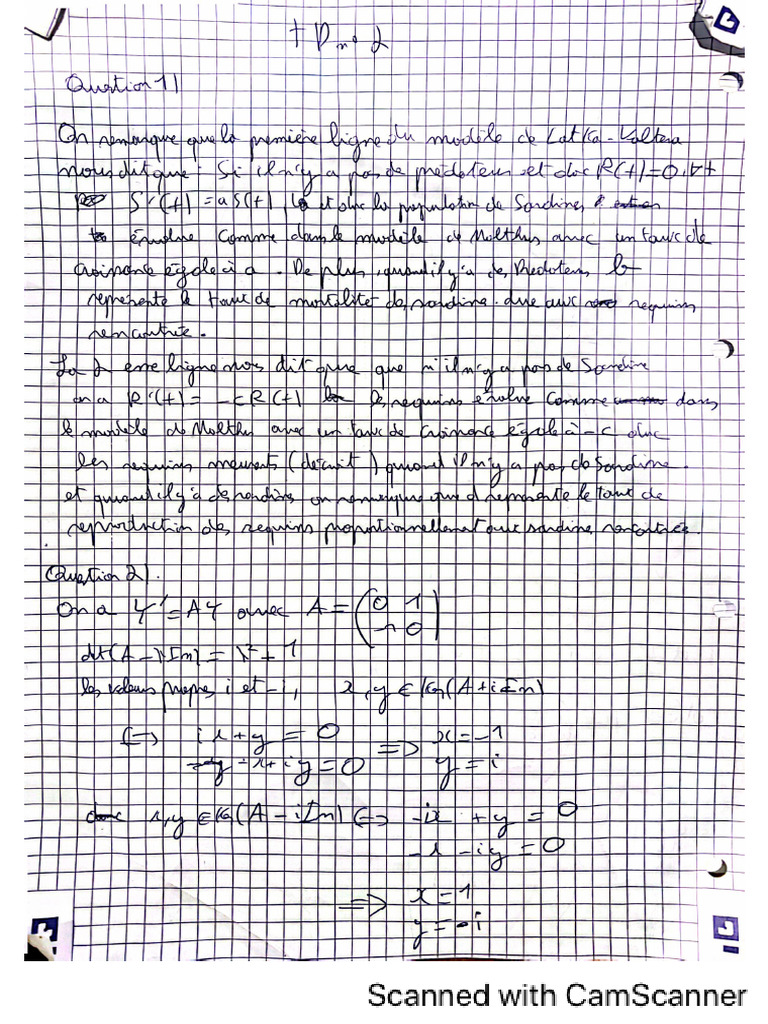 TP n° 2
Question 1)
On remarque que la première ligne du modèle de Lotka-Voltera
nous dit que : Si il n'y a pas de prédateurs et donc R(t)=0, ∀t
S'(t) = a S(t), et donc la population de Sardines
évolue comme dans le modèle de Malthus avec un taux de
croissance égale à a. De plus, quand il y a des Prédateurs, b
représente le taux de mortalité des sardines due aux requins
rencontrée.
La 2 eme ligne nous dit que que s'il n'y a pas de Sardine
on a R'(t) = -cR(t) les requins évolue comme dans
le modèle de Malthus avec un taux de croissance égale à -c donc
les requins meurents (décroit) quand il n'y a pas de Sardine.
et quand il y a de sardines on remarque que d represente le taux de
reproduction des requins proportionnellement aux sardine rencontrées.
Question 2).
On a Y' = AY avec A = (0 1
-1 0)
det(A-λIm) = λ²+1
les valeurs propres i et -i, x, y ∈ Ker(A+iIm)
(=) ix + y = 0 => x = -1
-x + iy = 0 y = i
x, y ∈ Ker(A - iIm) (=) -ix + y = 0
-x - iy = 0
=> x = 1
y = -i
Scanned with CamScanner